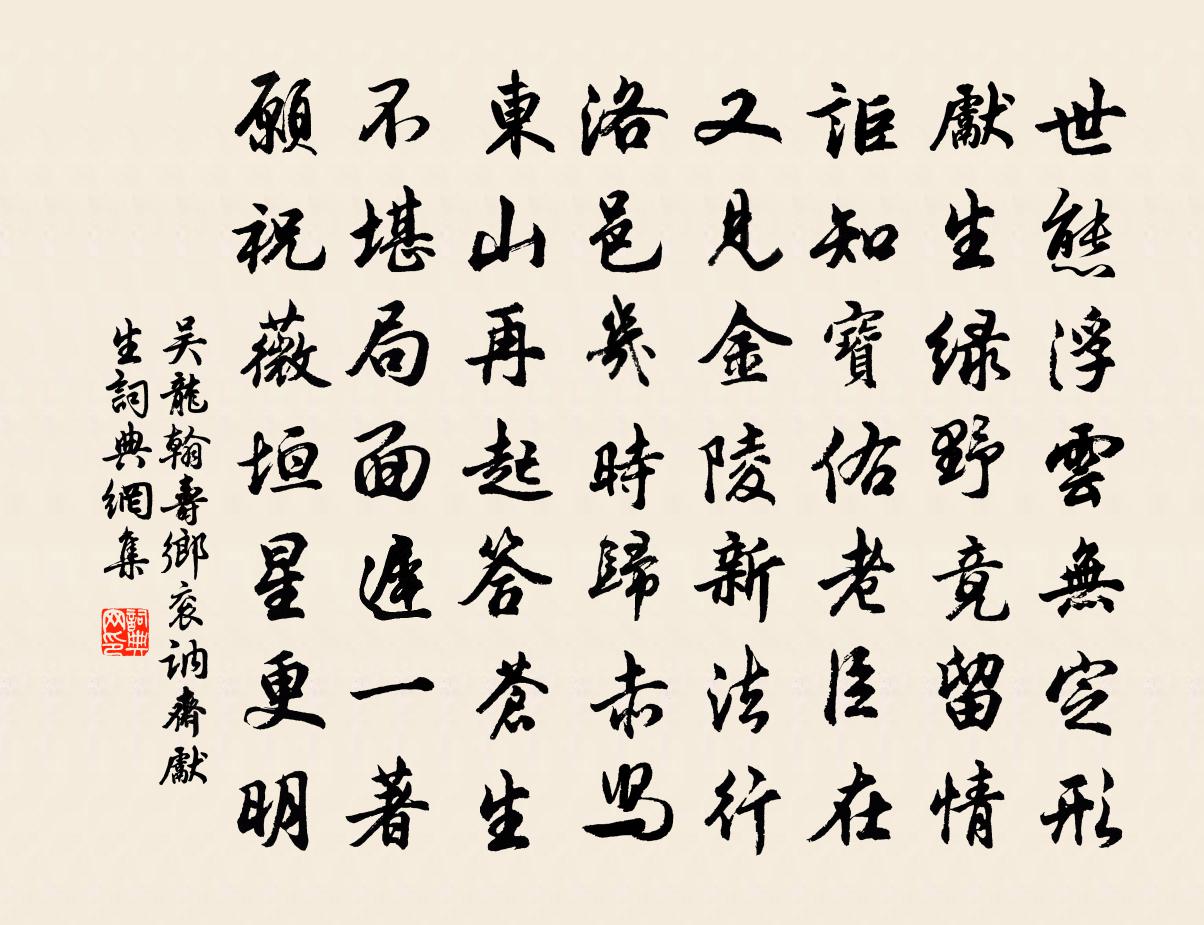 世態浮雲無定形
獻生綠野竟留情
詎知寶佑老臣在
又見金陵新法行
洛邑幾時歸赤舄
東山再起答蒼生
不堪局面遲一著
願祝薇垣星更明
吴龍翰壽鄉袞訥齋獻
生詞典網集
詞典
网印